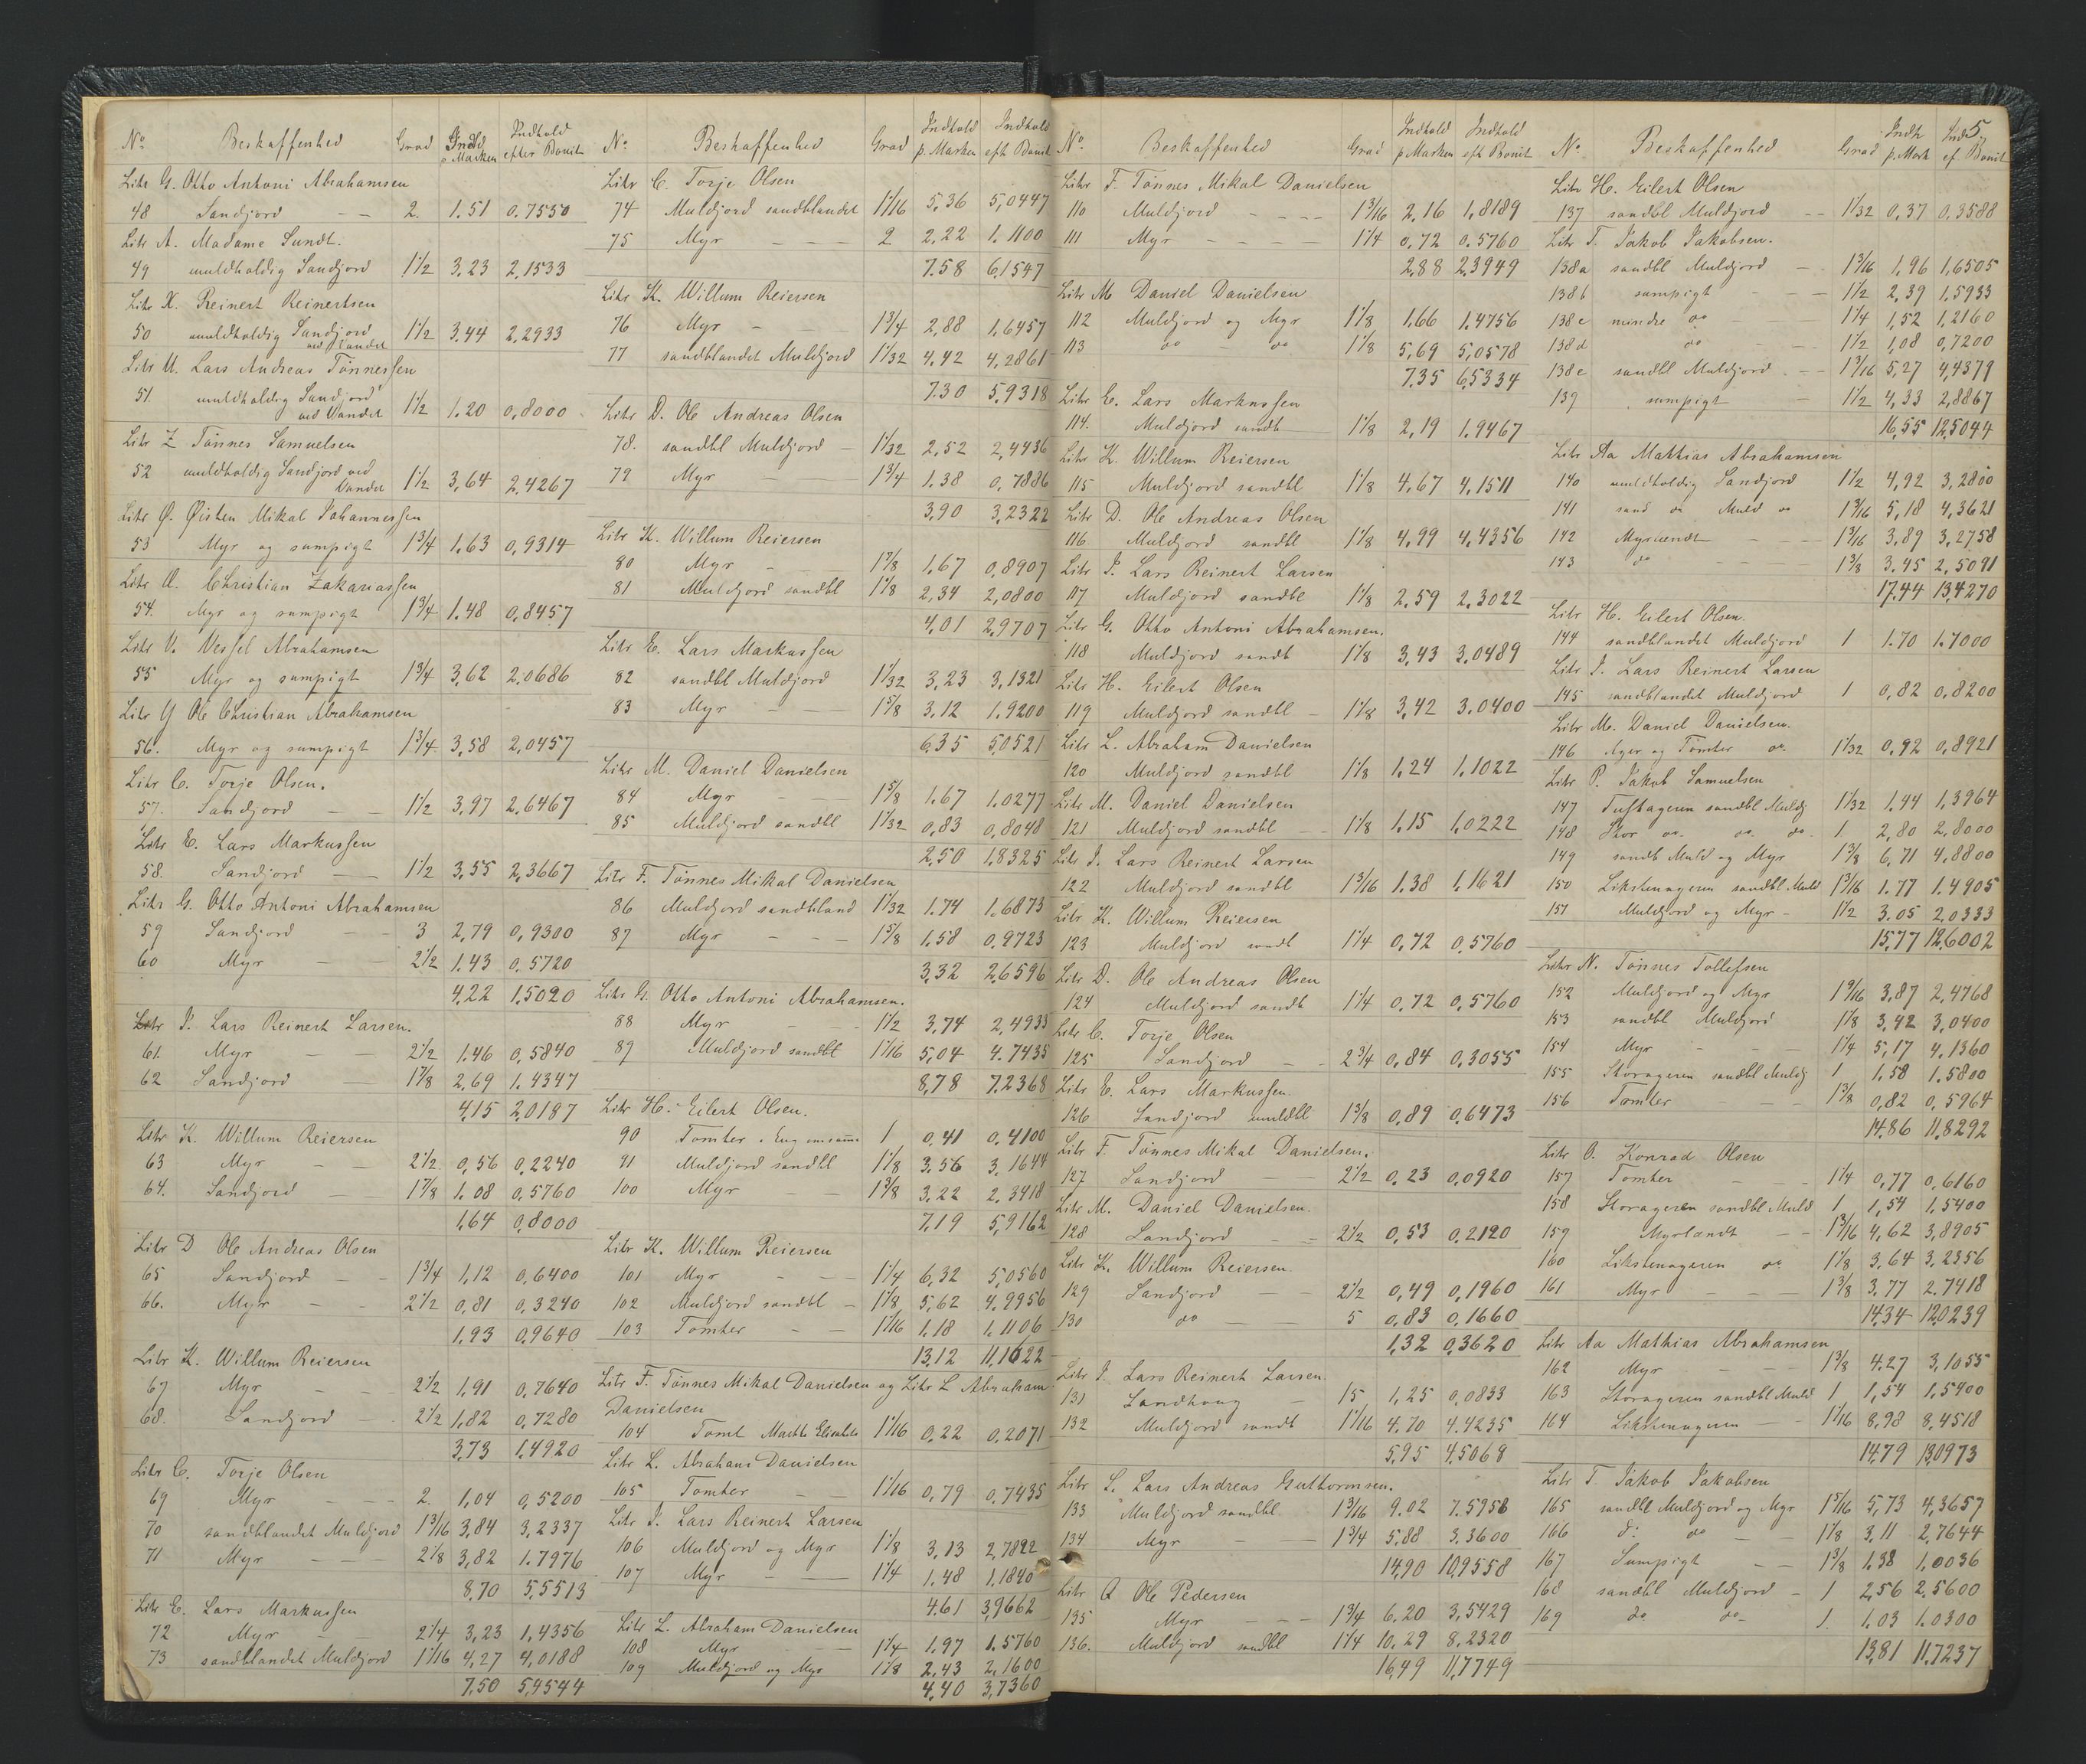 No Beskaffenhed Grad Indh p. Marken Indhold efter Bonit
Litr G. Otto Antoni Abrahamsen
48 Sandjord — — 2. 1.51 0.7550
Litr A. Madame Sundt.
49 muldholdig Sandjord 1 1/2 3,23 2,1533
Litr X. Reinert Reinertsen
50 muldholdig Sandjord ved Vandet 1 1/2 3,44 2,2933
Litr U. Lars Andreas Tønnessen
51. muldholdig Sandjord ved Vandet 1 1/2 1.20 0,8000
Litr Z Tønnes Samuelsen
52 muldholdig Sandjord ved Vandet 1 1/2 3,64 2,4267
Litr Ø. Øisten Mikal Johannessen
53 Myr og sumpigt 1 3/4 1.63 0,9314
Litr Æ. Christian Zakariassen
54. Myr og sumpigt 1 3/4 1.48 0,8457
Litr V. Vessel Abrahamsen
55 Myr og sumpigt 1 3/4 3,62 2.0686
Litr Y Ole Christian Abrahamsen
56. Myr og sumpigt 1 3/4 3,58 2,0457
Litr C. Torje Olsen.
57. Sandjord — — 1 1/2 3,97 2,6467
Litr E. Lars Markussen
58. Sandjord — 1 1/2 3,55 2,3667
Litr G. Otto Antoni Abrahamsen
59 Sandjord — — 3 2,79 0,9300
60 Myr — — 2 1/2 1.43 0.5720
4,22 1,5020
Litr I. Lars Reinert Larsen.
61. Myr — — 2 1/2 1.46 0,5840
62 Sandjord — 1 7/8 2,69 1.4347
4,15 2,0187
Litr K. Willum Reiersen
63 Myr — — 2 1/2 0,56 0,2240
64. Sandjord — 1 7/8 1.08 0,5760
1,64 0,8000
Litr D Ole Andreas Olsen
65 Sandjord — — 1 3/4 1,12 0,6400
66. Myr — — 2 1/2 0,81 0,3240
1,93 0,9640
Litr K. Willum Reiersen
67 Myr — — 2 1/2 1,91 0,7640
68. Sandjord — 2 1/2 1,82 0,7280
3,73 1,4920
Litr C. Torje Olsen
69 Myr — — 2. 1,04 0,5200
70 sandblandet Muldjord 1 3/16 3,84 3,2337
71 Myr — — 2 1/8 3,82 1.7976
8,70 5,5513
Litr E. Lars Markussen
72 Myr — — 2 1/4 3,23 1,4356
73 sandblandet Muldjord 1 1/16 4,27 4,0188
7,50 5,4544
No. Beskaffenhed Grad Indhold p. Marken Indhold eft Bonit
Litr C. Torje Olsen
74 Muldjord sandblandet 1 1/16 5,36 5,0447
75 Myr — — — 2 2,22 1.1100
7.58 6,1547
Litr K. Willum Reiersen
76 Myr — — 1 3/4 2,88 1,6457
77 sandblandet Muldjord 1 1/32 4,42 4,2861
7.30 5,9318
Litr D. Ole Andreas Olsen
78. sandbl Muldjord — 1 1/32 2,52 2,4436
79 Myr — 1 3/4 1.38 0,7886
3,90 3,2322
Litr K. Willum Reiersen
80 Myr — 1 7/8 1,67 0,8907
81 Muldjord sandbl 1 1/8 2,34 2,0800
4,01 2,9707
Litr E. Lars Markussen
82 sandbl Muldjord 1 1/32 3,23 3,1321
83 Myr — — 1 5/8 3,12 1,9200
6,35 5,0521
Litr M. Daniel Danielsen
84 Myr — — 1 5/8 1.67 1.0277
85 Muldjord sandbl 1 1/32 0,83 0,8048
2,50 1,8325
Litr F. Tønnes Mikal Danielsen
86 Muldjord sandbland 1 1/32 1.74 1.6873
87 Myr — — 1 5/8 1,58 0,9723
3,32 2,6596
Litr G. Otto Antoni Abrahamsen.
88 Myr — — 1 1/2 3,74 2,4933
89 Muldjord sandbl 1 1/16 5,04 4.7435
8,78 7,2368
Litr H. Eilert Olsen.
90 Tomter 1 0,41 0,4100
91 Muldjord sandbl 1 1/8 3,56 3,1644
100 Myr — — 1 3/8 3,22 2.3418
7,19 5,9162
Litr K. Willum Reiersen
101 Myr — — 1 1/4 6,32 5,0560
102 Muldjord sandbl — 1 1/8 5,62 4,9956
103 Tomter — — 1 1/16 1.18 1.1106
13,12 11,1622
Litr F. Tønnes Mikal Danielsen og Litr L Abraham
Danielsen
104 Tomt 1 1/16 0,22 0,2071
Litr L. Abraham Danielsen
105 Tomter — — 1 1/16 0,79 0,7435
Litr I. Lars Reinert Larsen
106 Muldjord og Myr 1 1/8 3,13 2,7822
107 Myr — — 1 1/4 1.48 1.1840
4,61 3,9662
Litr L. Abraham Danielsen
108 Myr — 1 1/4 1.97 1.5760
109 Muldjord og Myr 1 1/8 2,43 2,1600
4,40 3,7360
No. Beskaffenhed Grad Indhold p Marken Indhold eft Bonit
Litr F. Tønnes Mikal Danielsen
110 Muldjord — — — 1 3/16 2,16 1,8189
111 Myr — — — 1 1/4 0,72 0,5760
2,88 2,3949
Litr M Daniel Danielsen
112 Muldjord og Myr 1 1/8 1,66 1.4756
113 do — do 1 1/8 5,69 5,0578
7,35 6,5334
Litr E. Lars Markussen
114. Muldjord sandb 1 1/8 2,19 1.9467
Litr K. Willum Reiersen
115 Muldjord sandbl 1 1/8 4,67 4,1511
Litr D. Ole Andreas Olsen
116 Muldjord sandbl 1 1/8 4,99 4,4356
Litr I. Lars Reinert Larsen
117 Muldjord sandbl 1 1/8 2.59 2,3022
Litr G. Otto Antoni Abrahamsen.
118 Muldjord sandb 1 1/8 3,43 3,0489
Litr H. Eilert Olsen
119 Muldjord sandbl — 1 1/8 3,42 3.0400
Litr L. Abraham Danielsen
120 Muldjord sandbl 1 1/8 1,24 1.1022
Litr M. Daniel Danielsen
121 Muldjord sandbl — 1 1/8 1,15 1,0222
Litr I. Lars Reinert Larsen
122 Muldjord sandbl 1 3/16 1.38 1,1621
Litr K. Willum Reiersen
123 Muldjord sandb 1 1/4 0,72 0,5760
Litr D. Ole Andreas Olsen
124 Muldjord sandb 1 1/4 0,72 0,5760
Litr C. Torje Olsen
125 Sandjord — 2 3/4 0,84 0,3055
Litr E. Lars Markussen.
126 Sandjord muldbl 1 3/8 0,89 0,6473
Litr F. Tønnes Mikal Danielsen.
127 Sandjord — — 2 1/2 0,23 0,0920
Litr M. Daniel Danielsen.
128 Sandjord — — 2 1/2 0,53 0,2120
Litr K. Willum Reiersen.
129 Sandjord — — 2 1/2 0,49 0,1960
130 do — 5 0,83 0,1660
1,32 0,3620
Litr I. Lars Reinert Larsen.
131 Sandhaug — 15 1,25 0,0833
132 Muldjord sandb 1 1/16 4.70 4.4235
5,95 4,5068
Litr S. Lars Andreas Guttormsen.
133 Muldjord sandbl. 1 3/16 9.02 7.5956
134 Myr — 1 3/4 5,88 3.3600
14,90 10,9558
Litr Q Ole Pedersen
135 Myr — — 1 3/4 6.20 3,5429
136. Muldjord sandbl 1 1/4 10,29 8,2320
16,49 11,7749
5
No. Beskaffenhed Grad Indh p. Mark Indh ef Bonit
Litr H. Eilert Olsen
137 sandbl Muldjord — 1 1/32 0,37 0,3588
Litr T. Jakob Jakobsen.
138a sandbl Muldjord — 1 3/16 1,96 1,6505
138b sumpigt — — 1 1/2 2,39 1,5933
138c mindre do — 1 1/4 1,52 1,2160
138d do — 1 1/2 1,08 0,7200
138e sandbl Muldjord — 1 3/16 5,27 4,4379
139 sumpigt — 1 1/2 4,33 2,8867
16,55 12,5044
Litr Aa Mathias Abrahamsen
140 muldholdig Sandjord 1 1/2 4,92 3,2800
141 sand do Muld do 1 3/16 5,18 4,3621
142 Myrlændt — — 1 3/16 3,89 3,2758
143 do — — 1 3/8 3.45 2,5091
17,44 13,4270
Litr H. Eilert Olsen.
144 sandblandet Muldjord 1 1.70 1.7000
Litr I. Lars Reinert Larsen
145 sandblandet Muldjord 1 0,82 0,8200
Litr M. Daniel Danielsen.
146 Ager og Tomter do. 1 1/32 0,92 0,8921
Litr P. Jakob Samuelsen
147 Tuftageren sandbl Muldj 1 1/32 1,44 1,3964
148 Stor do. do. do. 1 2,80 2,8000
149 sandb Muld og Myr 1 3/8 6,71 4,8800
150 Likstenageren sandbl Muld 1 3/16 1.77 1.4905
151 Muldjord og Myr — 1 1/2 3.05 2,0333
15,77 12,6002
Litr N. Tønnes Tollefsen
152 Muldjord og Myr 1 9/16 3,87 2,4768
153 sandbl Muldjord 1 1/8 3,42 3,0400
154 Myr — — 1 1/4 5,17 4,1360
155 Storageren sandbl Muldj 1 1.58 1.5800
156 Tomter — — 1 3/8 0,82 0,5964
14,86 11,8292
Litr O. Konrad Olsen
157 Tomter — — 1 1/4 0,77 0,6160
158 Storageren sandbl Muld 1 1,54 1,5400
159 Myrlændt — — 1 3/16 4,62 3,8905
160 Likstenageren do 1 1/8 3,64 3,2356
161 Myr — — — 1 3/8 3,77 2.7418
14,34 12,0239
Litr Aa Mathias Abrahamsen
162 Myr — — 1 3/8 4.27 3,1055
163 Storageren sandbl Muld 1 1,54 1,5400
164 Likstenageren — — 1 1/16 8,98 8,4518
14,79 13,0973
Litr T Jakob Jakobsen
165 sandbl Muldjord og Myr 1 5/16 5,73 4,3657
166 do do — 1 1/8 3,11 2,7644
167 Sumpigt — — 1 3/8 1.38 1,0036
168 sandbl Muldjord — 1 2,56 2,5600
169 do do — 1. 1.03 1.0300
13,81 11,7237